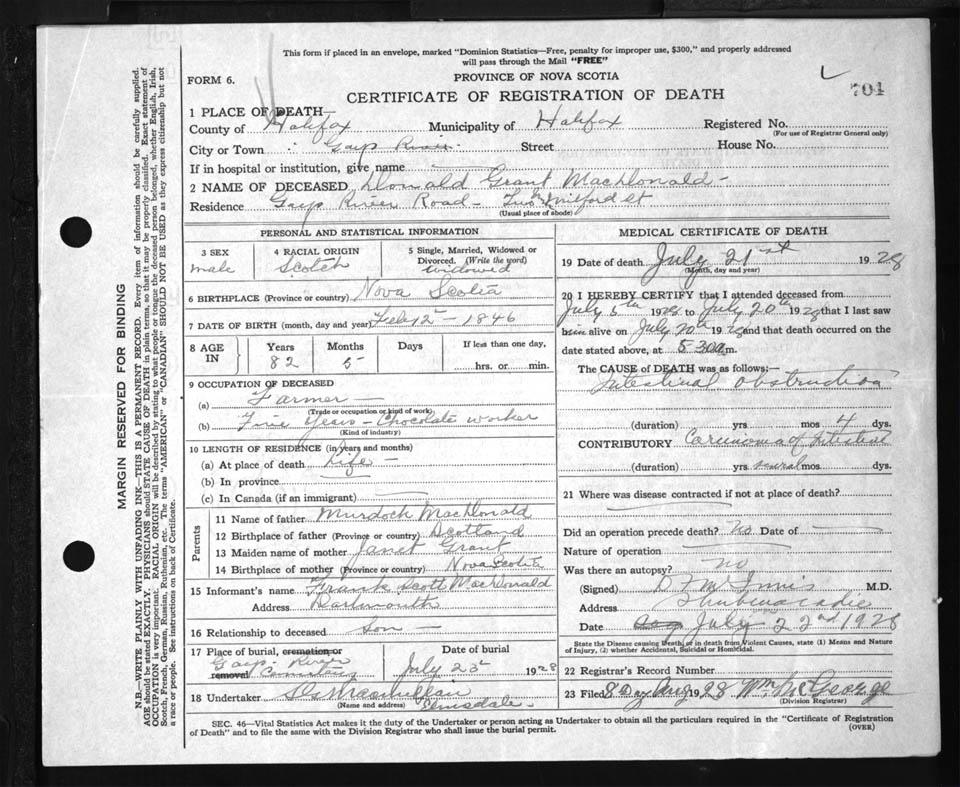 This form if placed in an envelope, marked "Dominion Statistics—Free, penalty for improper use, $300," and properly addressed
will pass through the Mail "FREE"
FORM 6.
PROVINCE OF NOVA SCOTIA
704
CERTIFICATE OF REGISTRATION OF DEATH
1 PLACE OF DEATH—
County of Halifax Municipality of Halifax Registered No.
(For use of Registrar General only)
City or Town Gays River Street House No.
If in hospital or institution, give name
2 NAME OF DECEASED Donald Grant MacDonald
Residence Gays River Road - Milford St
(Usual place of abode)
PERSONAL AND STATISTICAL INFORMATION
3 SEX
male
4 RACIAL ORIGIN
Scotch
5 Single, Married, Widowed or
Divorced. (Write the word)
widowed
6 BIRTHPLACE (Province or country) Nova Scotia
7 DATE OF BIRTH (month, day and year) 1846
8 AGE
IN
Years
82
Months
5
Days
If less than one day,
hrs. or min.
9 OCCUPATION OF DECEASED
(a) Farmer —
(Trade or occupation or kind of work)
(b) Five Years - Chocolate worker
(Kind of industry)
10 LENGTH OF RESIDENCE (in years and months)
(a) At place of death Life —
(b) In province
(c) In Canada (if an immigrant)
Parents
11 Name of father Murdoch MacDonald
12 Birthplace of father (Province or country) Scotland
13 Maiden name of mother Janet Grant
14 Birthplace of mother (Province or country) Nova Scotia
15 Informant's name Frank Scott MacDonald
Address Dartmouth
16 Relationship to deceased Son —
17 Place of burial, cremation or
removal
Gays River
Cemetery
Date of burial
July 23 1928
18 Undertaker MacMillan
(Name and address) Elmsdale
MEDICAL CERTIFICATE OF DEATH
19 Date of death July 21st 1928
(Month, day and year)
20 I HEREBY CERTIFY that I attended deceased from
July 5th 1928 to July 20th 1928 that I last saw
him alive on July 20th 1928 and that death occurred on
date stated above, at 5 30 a m.
The CAUSE of DEATH was as follows:—
Intestinal obstruction
(duration) yrs. mos. 4 dys.
CONTRIBUTORY Carcinoma of Intestine
(duration) yrs. several mos. dys.
21 Where was disease contracted if not at place of death?
Did an operation precede death? No Date of
Nature of operation
Was there an autopsy? no
(Signed) D F McInnis M.D.
Address Shubenacadie
Date July 22nd 1928
State the Disease causing Death, or in death from Violent Causes, state (1) Means and Nature
of Injury, (2) whether Accidental, Suicidal or Homicidal.
22 Registrar's Record Number
23 Filed 8 Aug 1928 Wm McGeorge
(Division Registrar)
SEC. 46—Vital Statistics Act makes it the duty of the Undertaker or person acting as Undertaker to obtain all the particulars required in the "Certificate of Registration
of Death" and to file the same with the Division Registrar who shall issue the burial permit.
(OVER)
MARGIN RESERVED FOR BINDING
N.B—WRITE PLAINLY WITH UNFADING INK—THIS IS A PERMANENT RECORD. Every item of information should be carefully supplied.
AGE should be stated EXACTLY. PHYSICIANS should STATE CAUSE OF DEATH in plain terms, so that it may be properly classified. Exact statement of
OCCUPATION is very important. RACIAL ORIGIN will be described by stating to what people or tongue the deceased person belonged, whether English, Irish,
Scotch, French, German, Russian, Ruthenian, etc. The terms "AMERICAN" or "CANADIAN" SHOULD NOT BE USED as they express citizenship but not
a race or people. See instructions on back of Certificate.